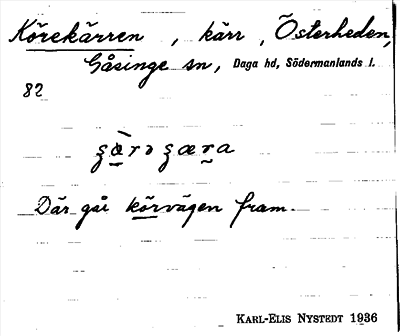 Körekärren, kärr, Österheden,
Gåsinge sn, Daga hd, Södermanlands l.
82
Där går körvägen fram.
KARL-ELIS NYSTEDT 1936